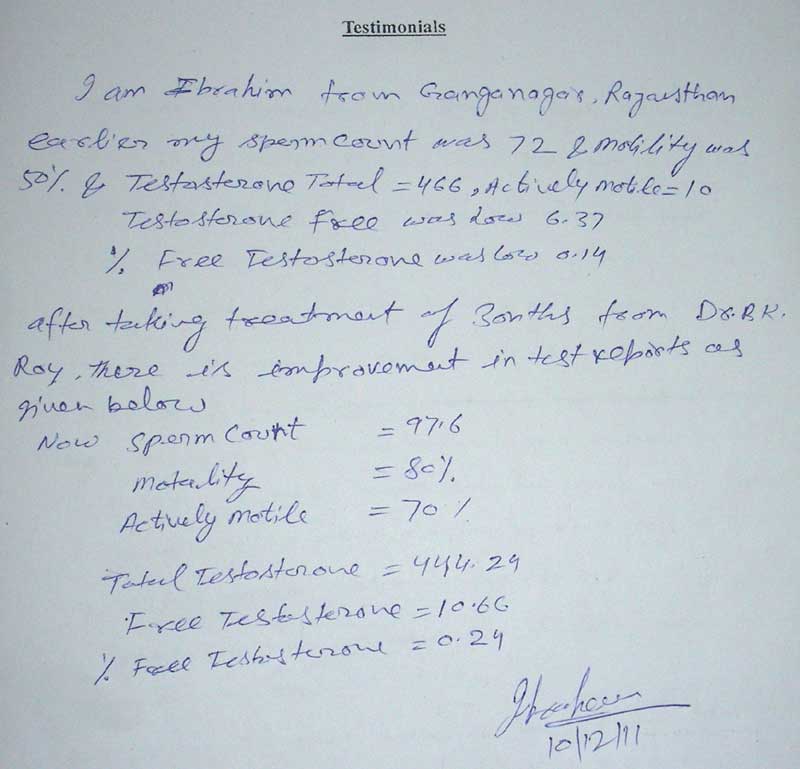 Testimonials
I am Ibrahim from Ganganagar, Rajasthan
earlier my sperm count was 72 & motility was
50% & Testosterone Total = 466, Actively motile = 10
Testosterone free was low 6.37
% Free Testosterone was low 0.14
after taking treatment of 3onths from Dr. B.K.
Roy, there is improvement in test reports as
given below
Now sperm Count = 97.6
motality = 80%
Actively motile = 70%
Total Testosterone = 444.24
Free Testosterone = 10.66
% Free Testosterone = 0.24
10/12/11